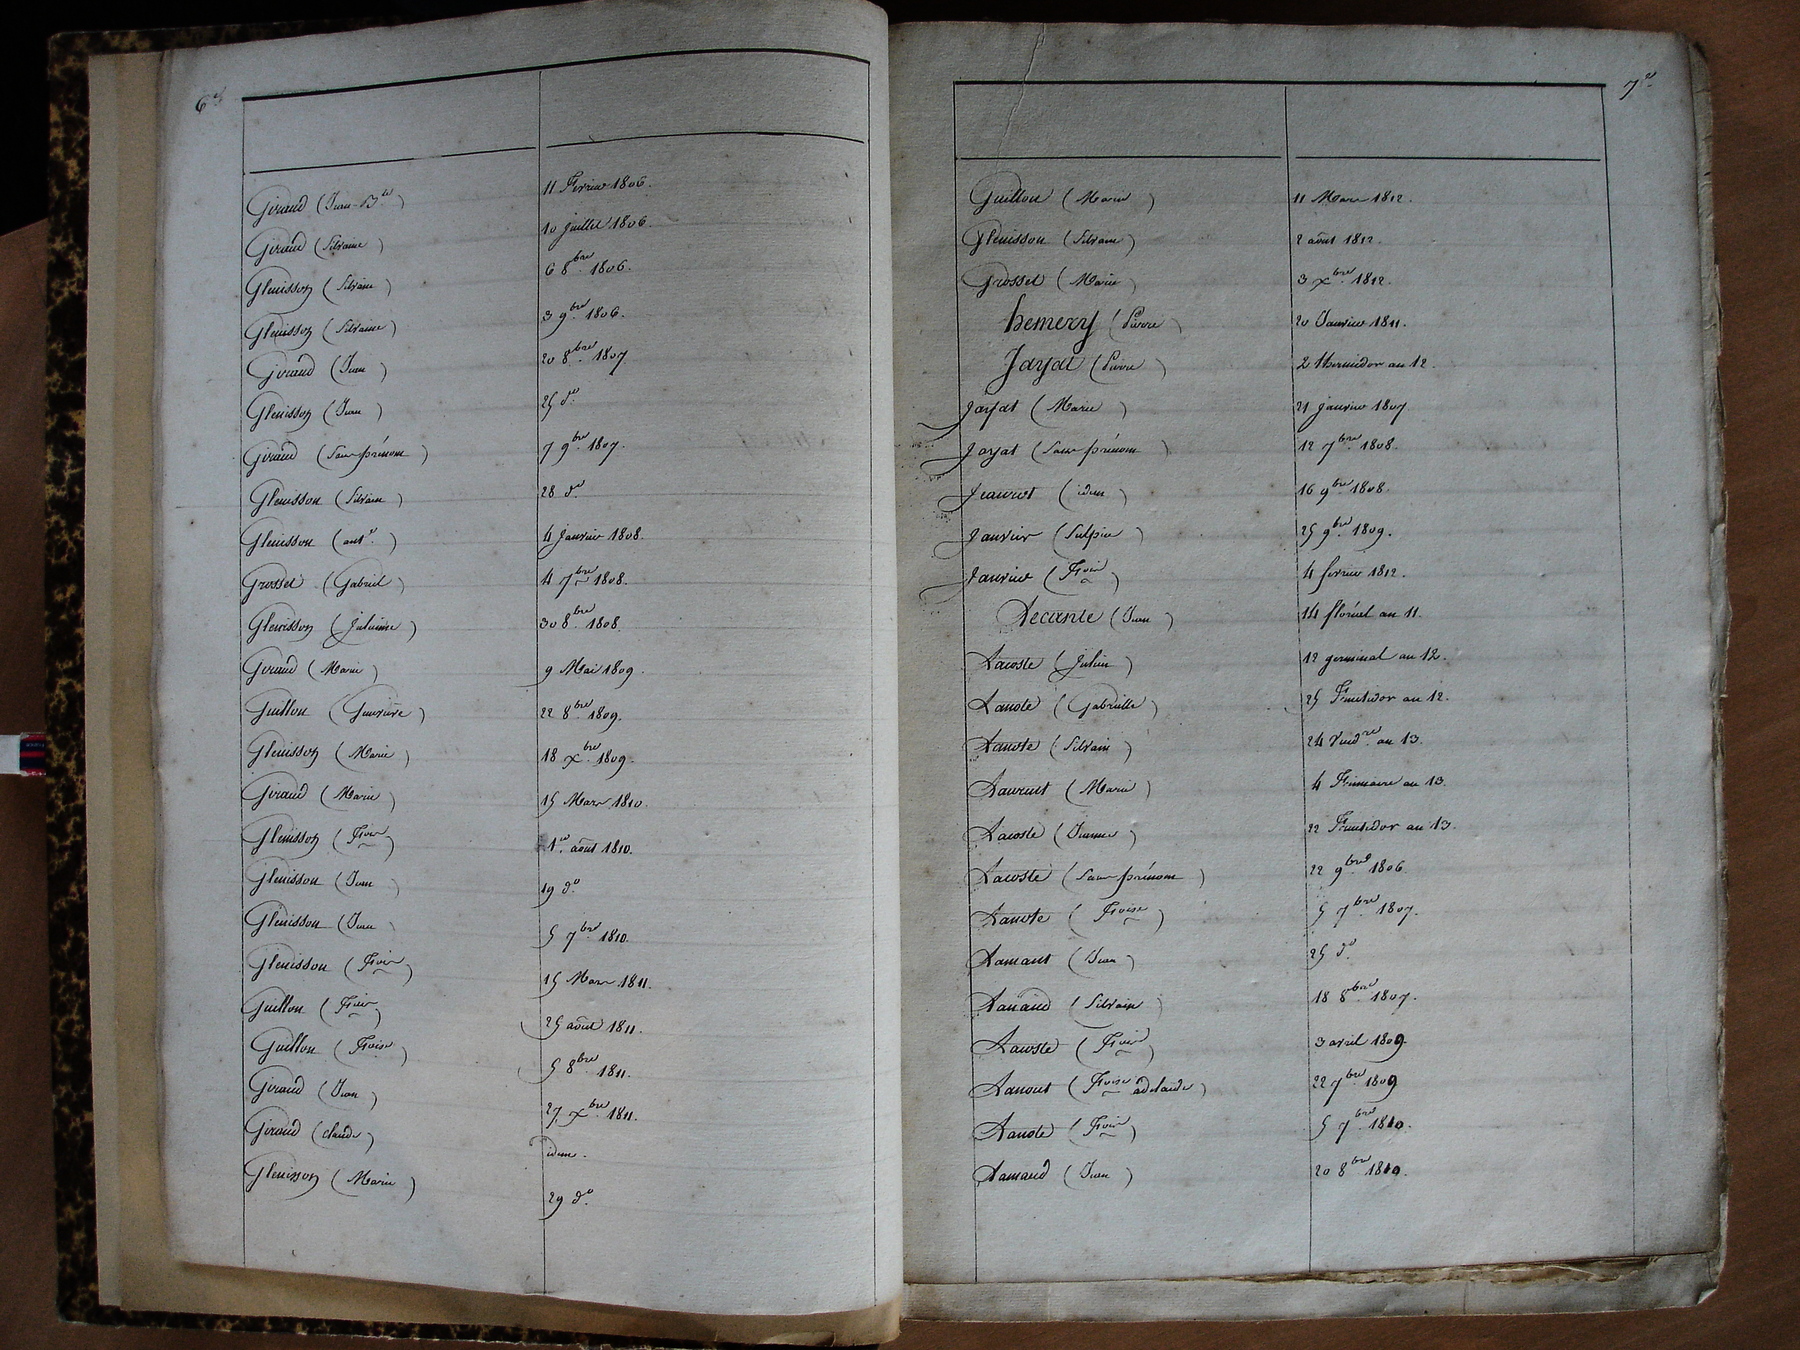 6e
Giraud (Jean-Bte) 11 Fevrier 1806.
Giraud (Silvaine) 10 juillet 1806.
Gleuisson (Silvain) 6 8bre 1806.
Gleuisson (Silvaine) 3 9bre 1806.
Giraud (Jean) 20 8bre 1807.
Gleuisson (Jean) 25 do
Giraud (Sans prénom) 7 9bre 1807.
Gleuisson (Silvain) 28 do
Gleuisson (ante) 4 Janvier 1808.
Grosset (Gabriel) 4 7bre 1808.
Gleuisson (Julienne) 30 8bre 1808.
Giraud (Marie) 9 Mai 1809.
Guillon (Genevieve) 22 8bre 1809.
Gleuisson (Marie) 18 xbre 1809.
Giraud (Marie) 15 Mars 1810.
Gleuisson (Frois) 1er août 1810.
Gleuisson (Jean) 19 do
Gleuisson (Jean) 5 7bre 1810.
Gleuisson (Frois) 15 Mars 1811.
Guillon (Frois) 25 août 1811.
Guillon (Froise) 5 8bre 1811.
Giraud (Jean) 27 xbre 1811.
Giraud (claude) idem.
Gleuisson (Marie) 29 do
7e
Guillon (Marie) 11 Mars 1812.
Gleuisson (Silvain) 2 août 1812.
Grosset (Marie) 3 xbre 1812.
hemery (Pierre) 20 Janvier 1811.
Jayat (Pierre) 2 thermidor an 12.
Jayat (Marie) 21 janvier 1807
Jayat (Sans prénom) 12 7bre 1808.
(idem) 16 9bre 1808.
Janvier (Sulpice) 25 9bre 1809.
Janvier (Frois) 4 fevrier 1812.
(Jean) 14 floréal an 11.
Lacoste (Julien) 12 germinal an 12.
Lanote (Gabrielle) 25 Fructidor an 12.
Lanote (Silvain) 24 Vendre an 13.
Laurent (Marie) 4 Frimaire an 13.
Lacoste (Jeanne) 22 Fructidor an 13.
Lacoste (Sans prénom) 22 9bre 1806
Lanote (Froise) 5 7bre 1807.
Lamant (Jean) 25 do
(Silvain) 18 8bre 1807.
Lacoste (Frois) 3 avril 1809.
(Froise adelaide) 22 7bre 1809
Lanote (Frois) 5 7bre 1810.
Lamaud (Jean) 20 8bre 1810.